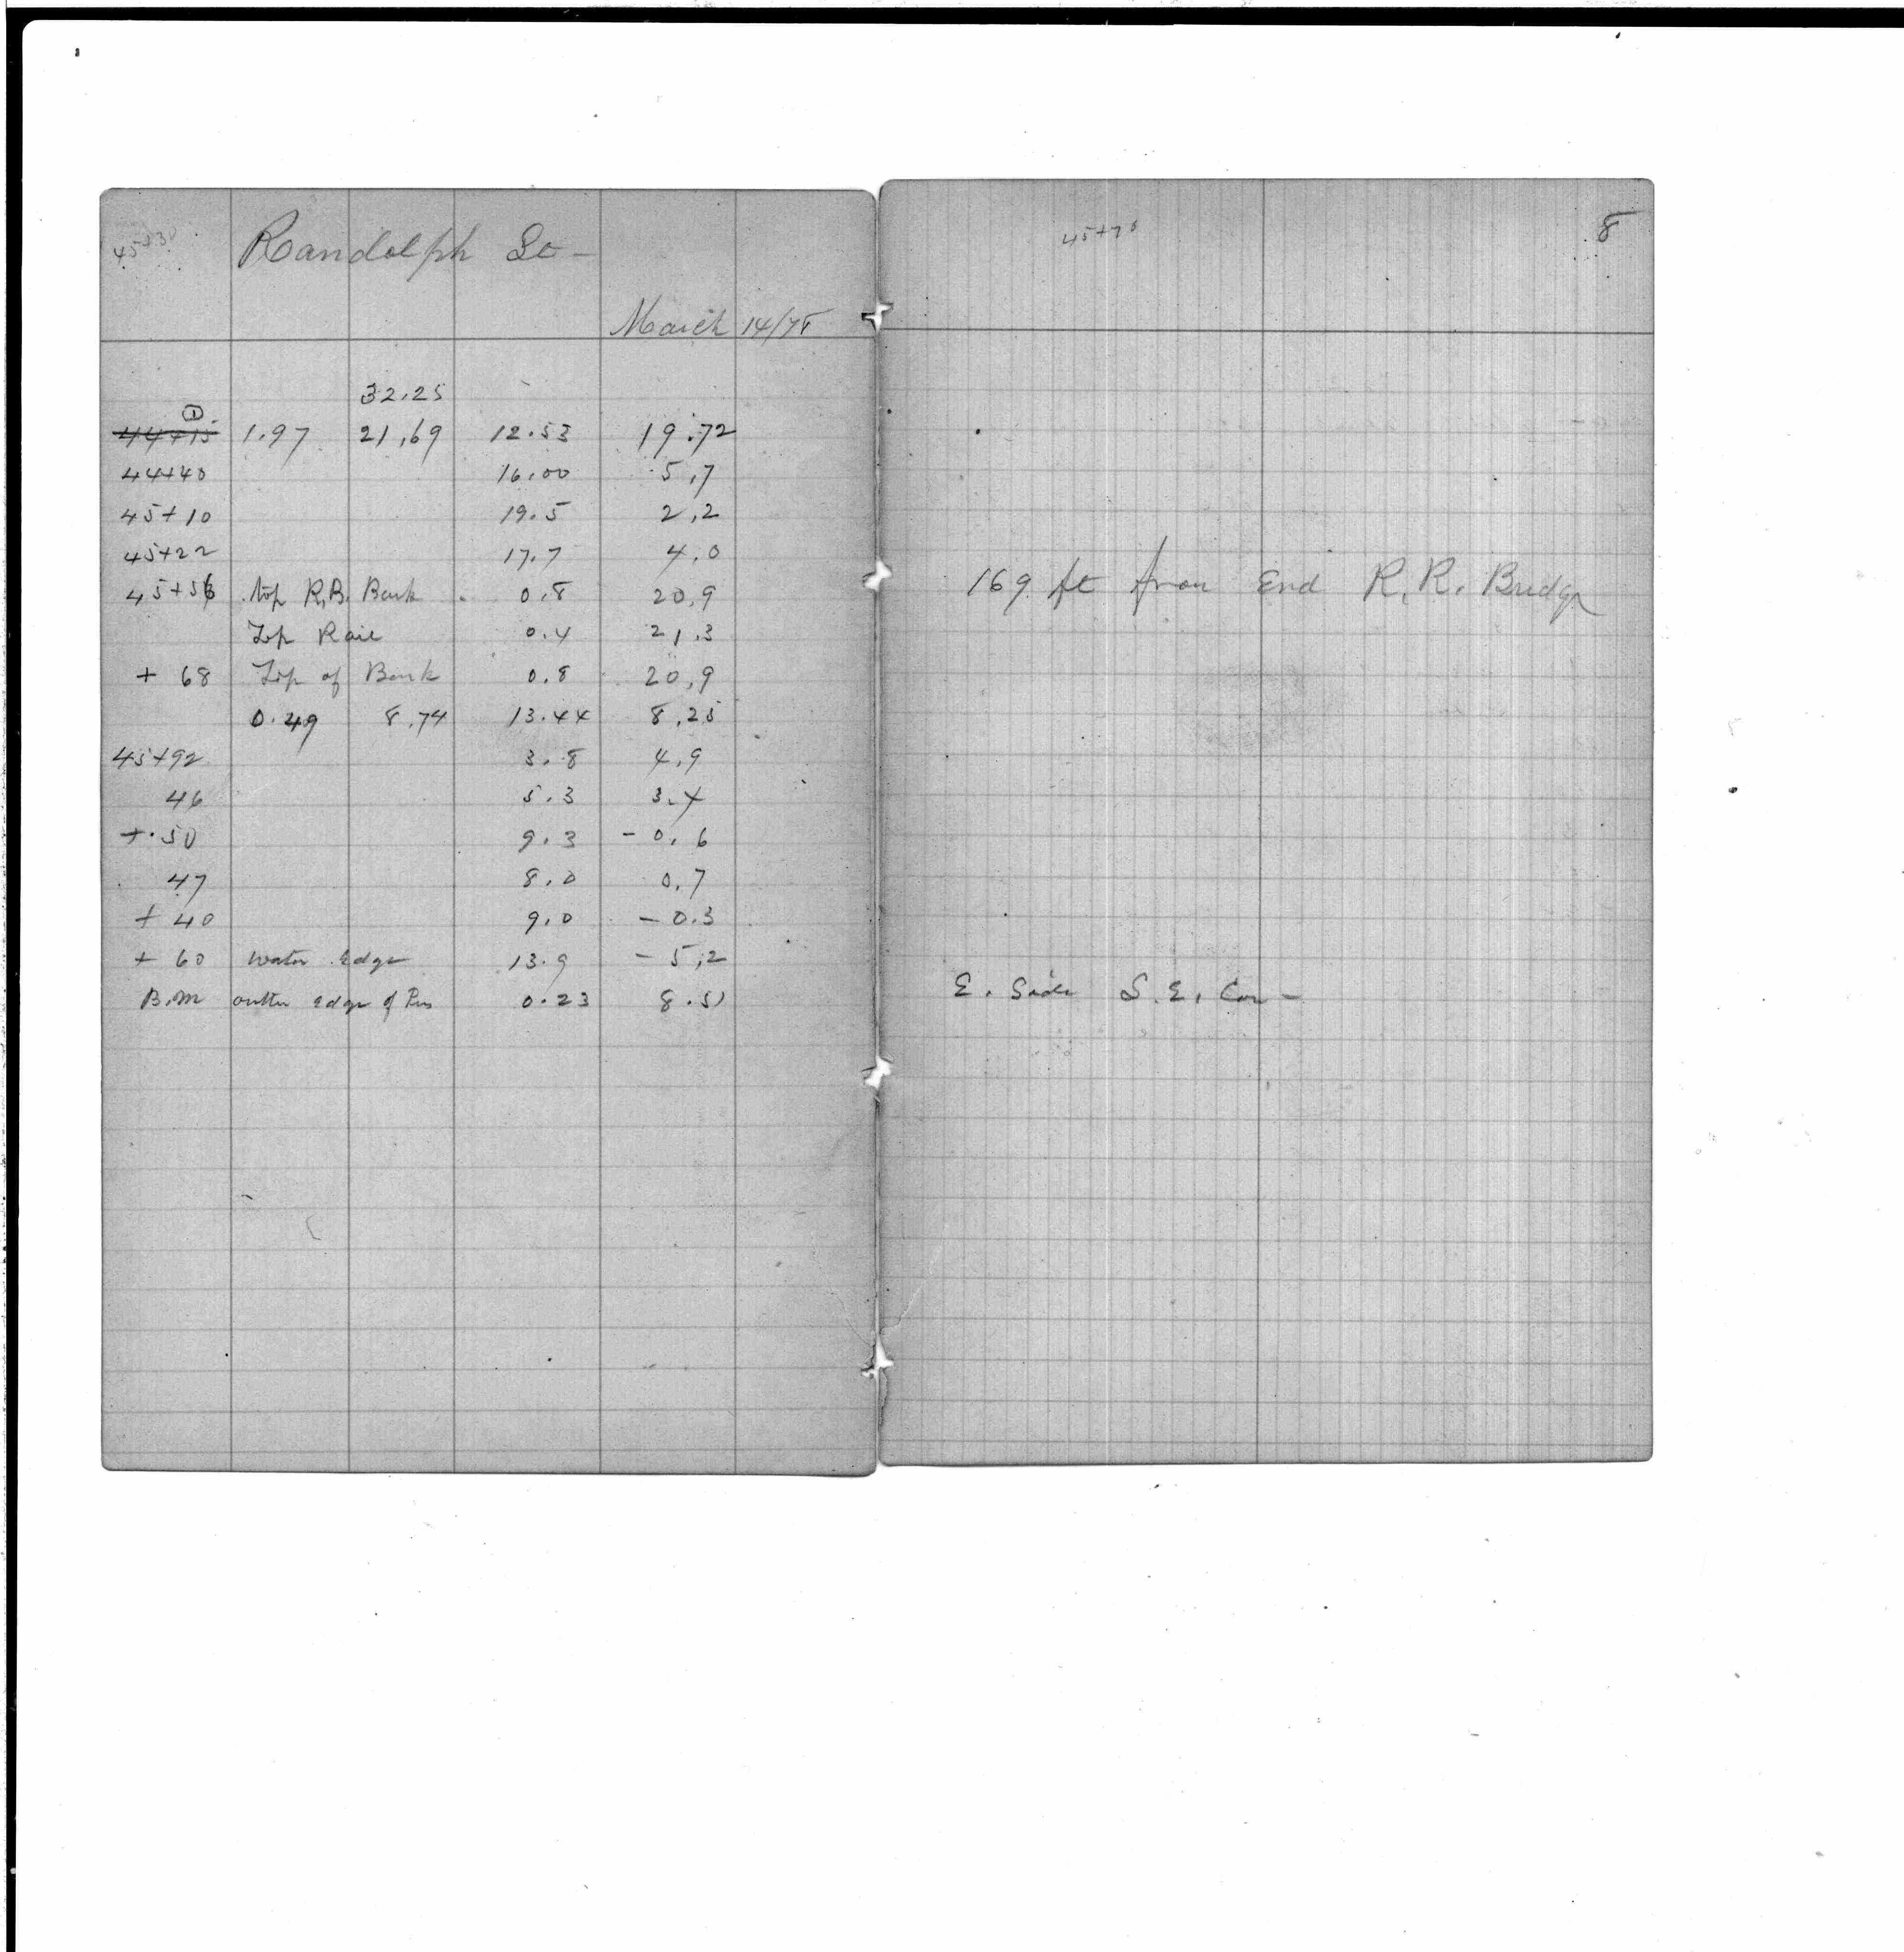 45+30
Randolph St -
March 14/78
32.25
①
44+15 1.97 21.69 12.53 19.72
44+40 16.00 5.7
45+10 19.5 2.2
45+22 17.7 4.0
45+56 top R.R. Bank 0.8 20.9
Top Rail 0.4 21.3
+ 68 Top of Bank 0.8 20.9
0.49 8.74 13.44 8.25
45+92 3.8 4.9
46 5.3 3.4
+.50 9.3 - 0.6
47 8.0 0.7
+ 40 9.0 - 0.3
+ 60 water Edge 13.9 - 5.2
B.M outer edge of 0.23 8.51
45+70
8
169 ft from End R.R. Bridge
E. Side S.E. Cor -